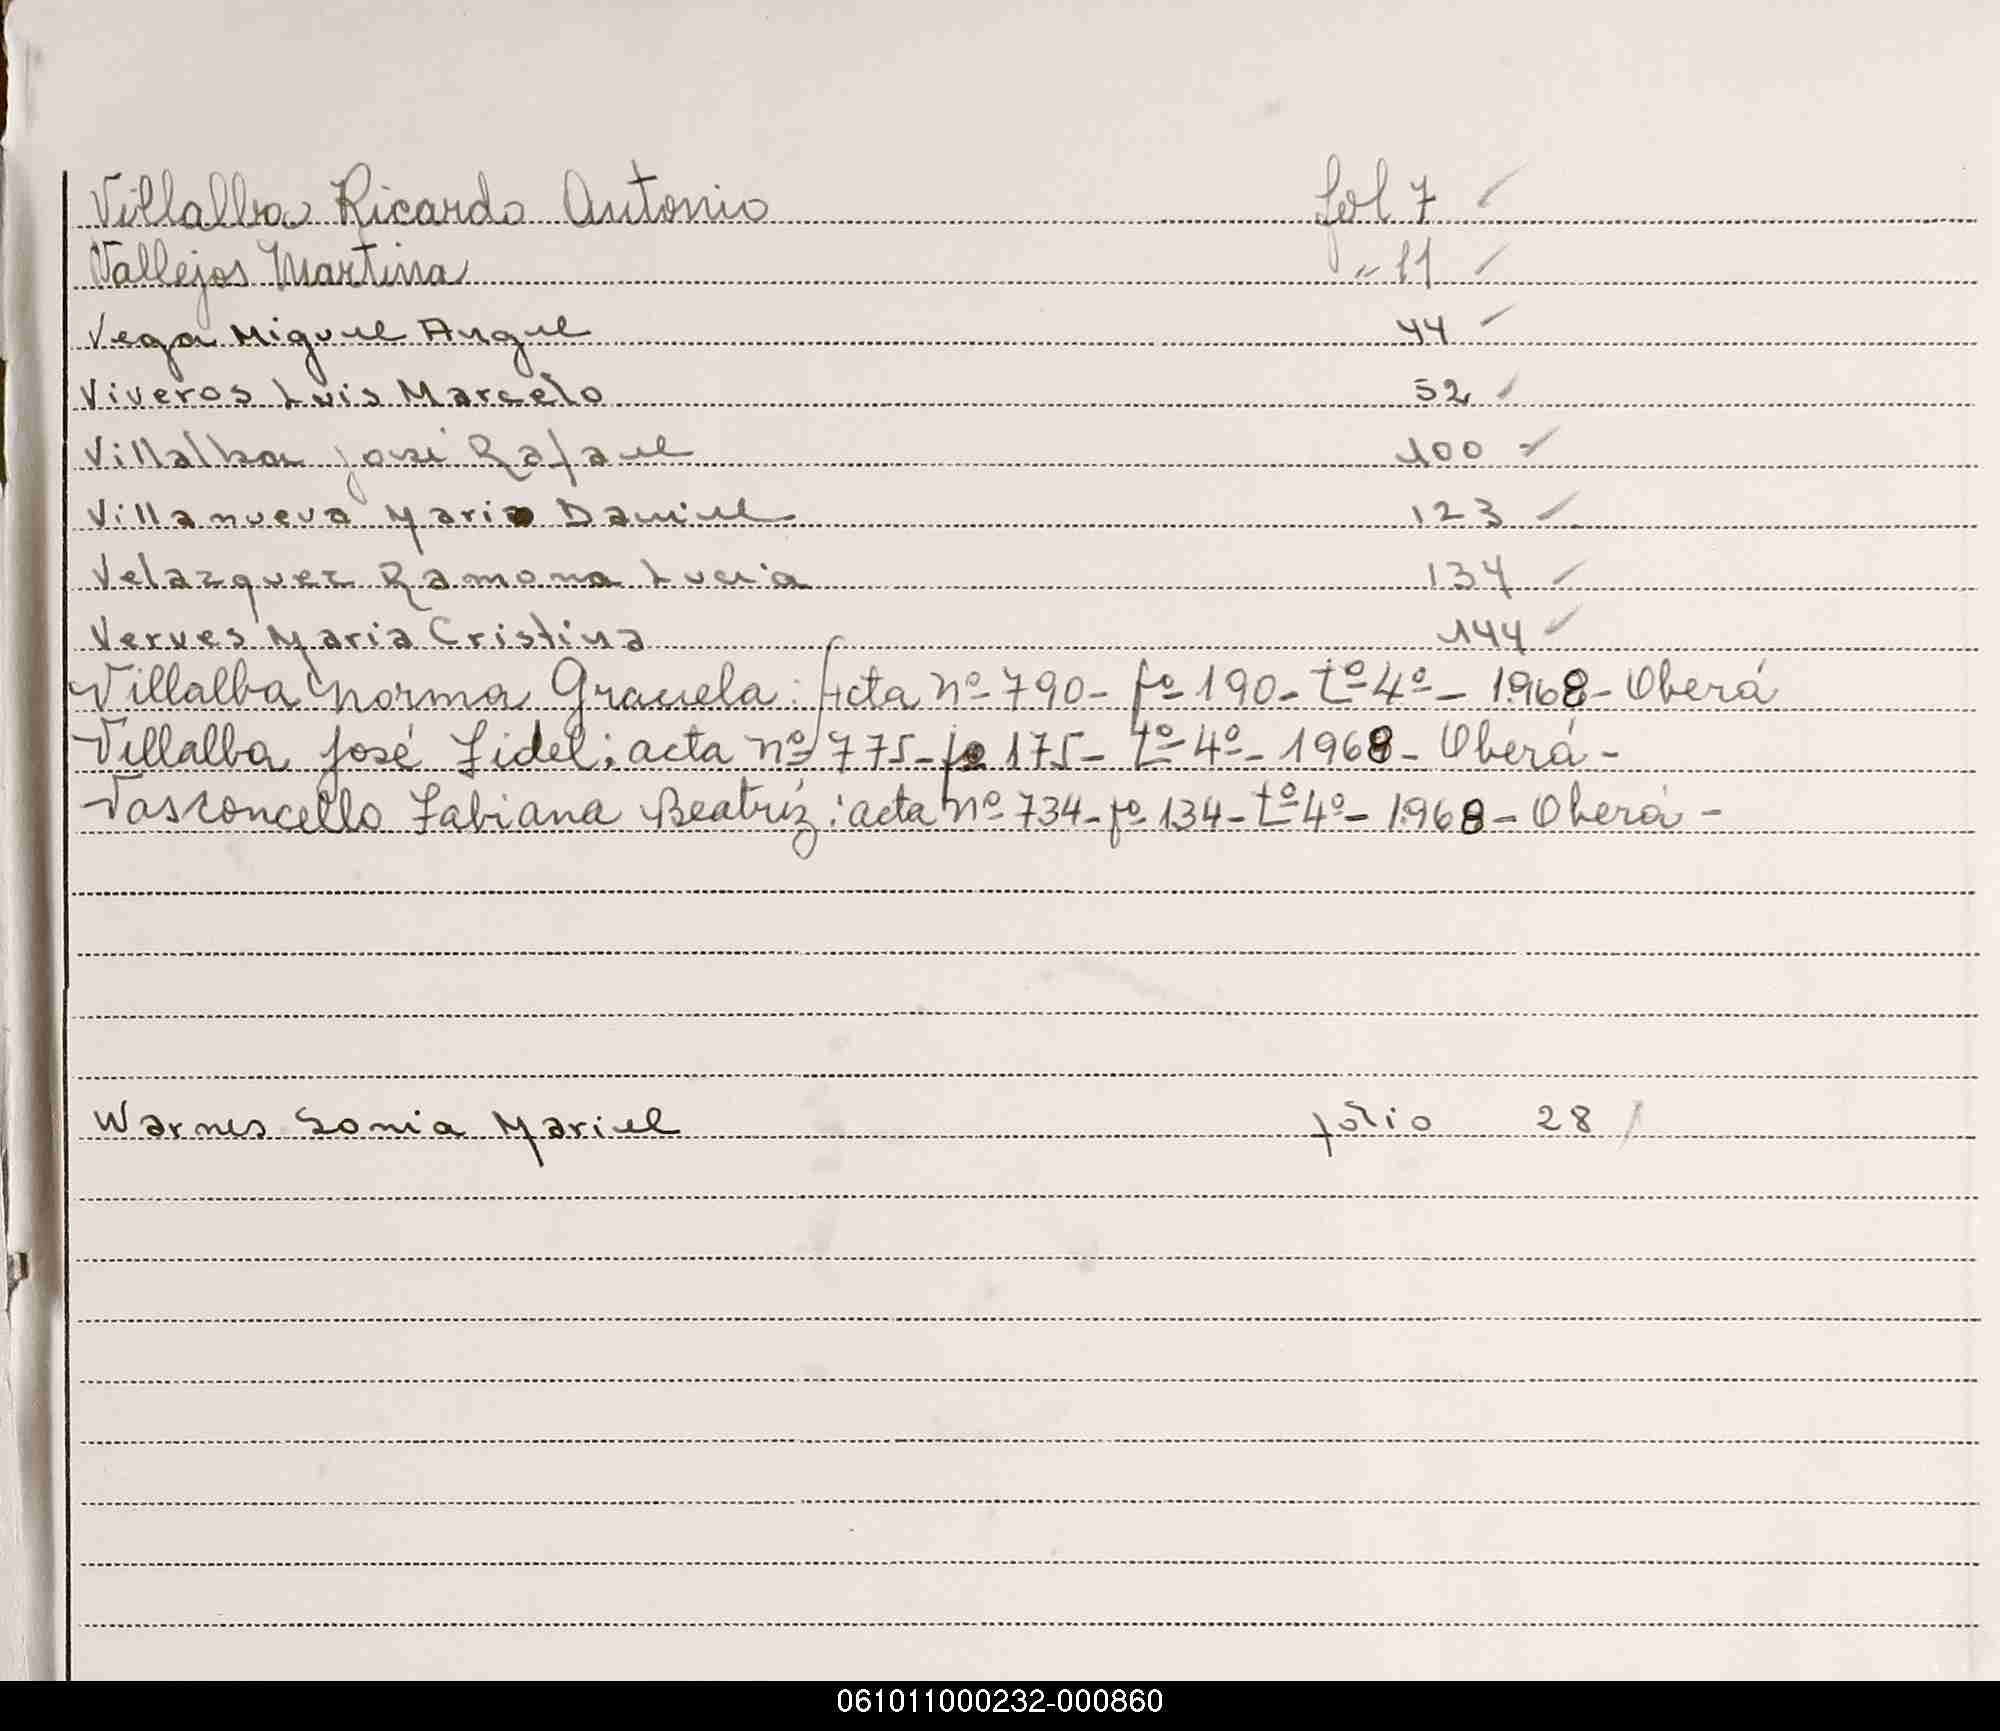 Villalba Ricardo Antonio fol 7 ✓
Vallejos Martina " 11 ✓
Vega Miguel Angel 44 ✓
Viveros Luis Marcelo 52 ✓
Villalba José Rafael 100 ✓
Villanueva Mario Daniel 123 ✓
Velazquez Ramona Lucia 134 ✓
Verves Maria Cristina 144 ✓
Villalba Norma Graciela: Acta nº 790- fº 190- tº 4º- 1968- Oberá
Villalba José Fidel; acta nº 775- fº 175- tº 4º- 1968- Oberá-
Vasconcello Fabiana Beatriz: acta nº 734- fº 134- tº 4º- 1968- Oberá-
Warnes Sonia Mariel folio 28 /
061011000232-000860